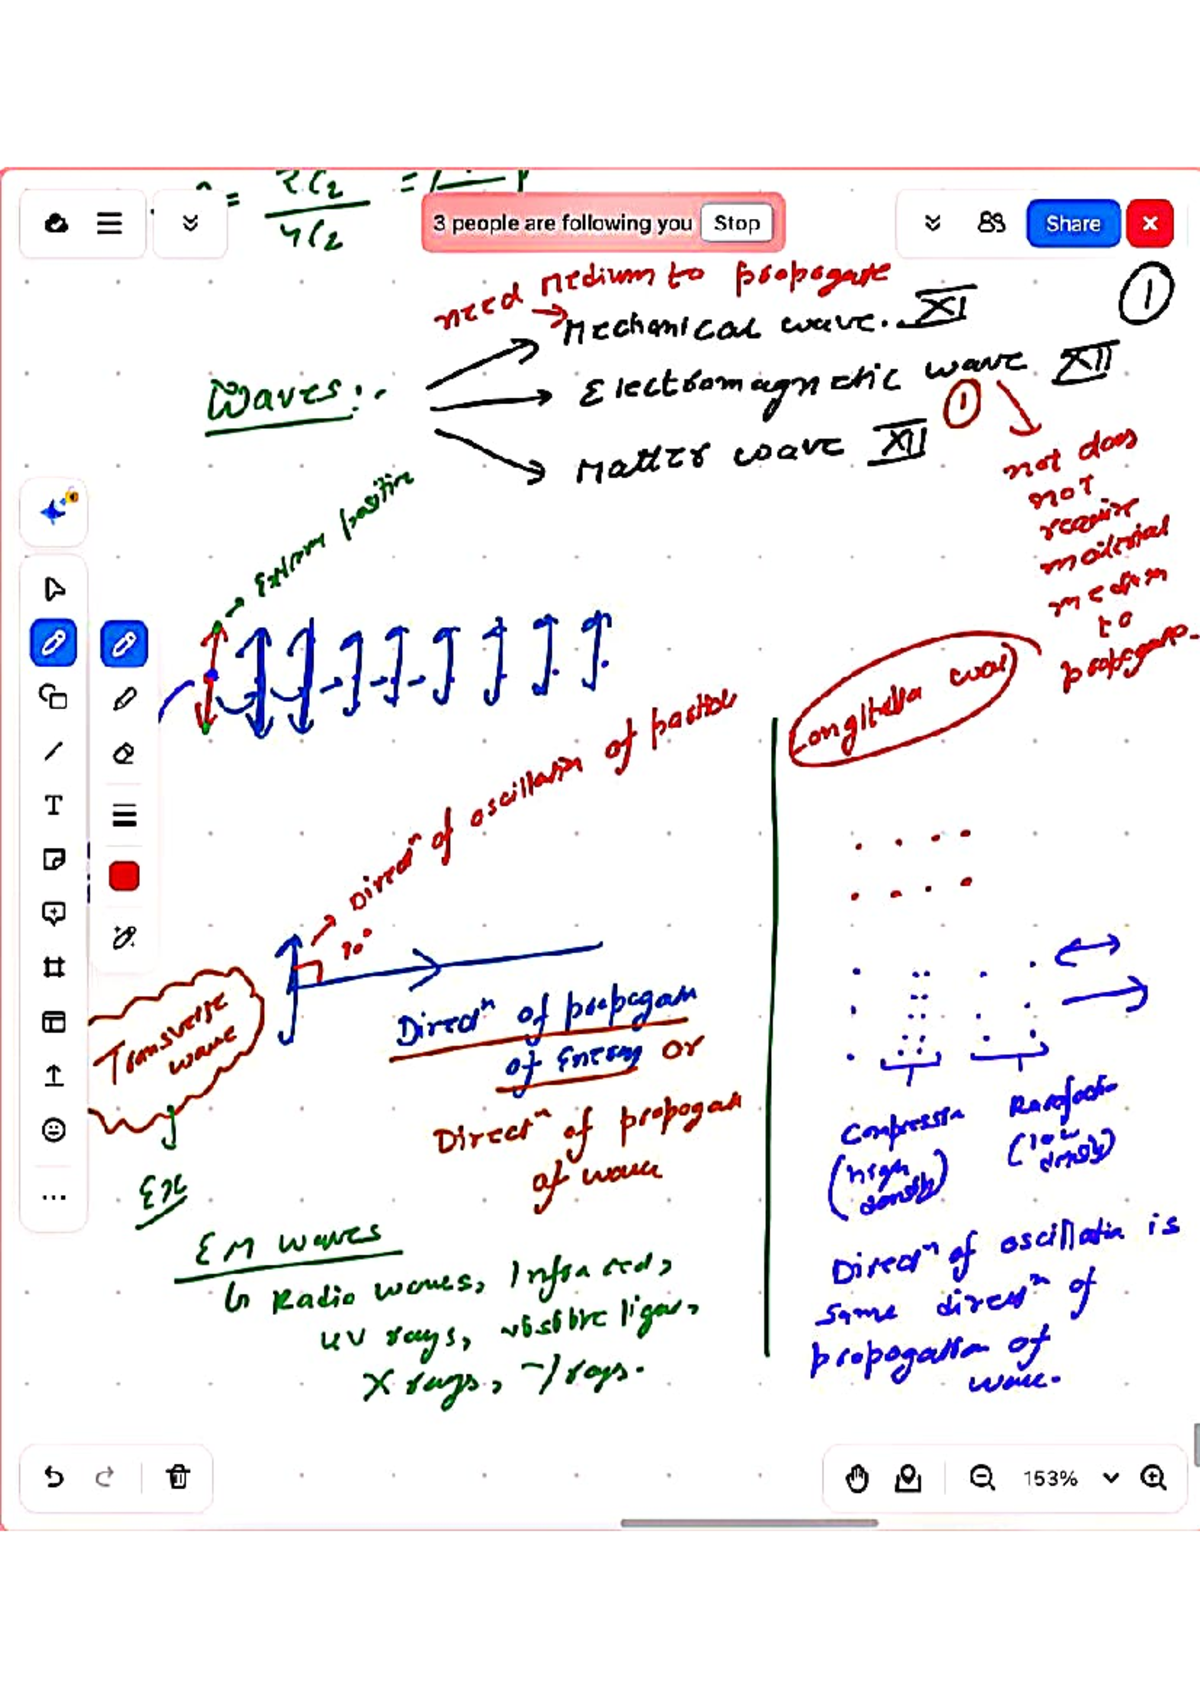 = 2C2 =
4C2
3 people are following you Stop
Share
need medium to propogate
Waves:-
→ Mechanical wave. XI
1
Electromagnetic wave XII
1
Matter wave XII
not does
not
require
material
medium
to
propogate
Extrem positive
Longitudinal wave
Directn of oscillation of particle
90°
Transverse
wave
Directn of propogan
of Energy or
Directn of propogan
of wave
Ex
EM waves
Radio waves, Infra red,
UV rays, visible light,
X rays, γ rays.
Compression
(high
density)
Rarefaction
(low
density)
Directn of oscillation is
same directn of
propogation of
wave.
T
153%